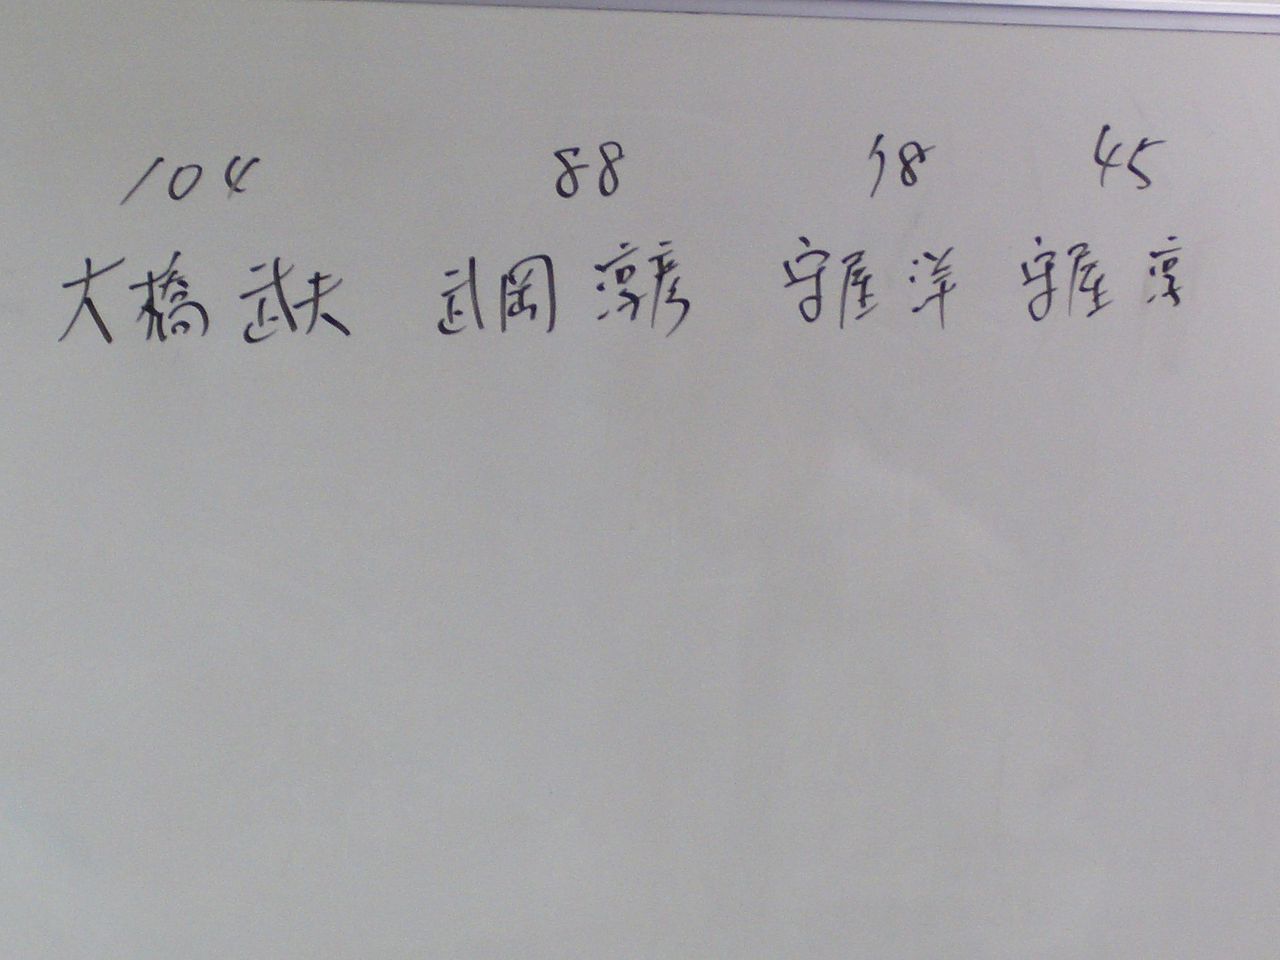 104 88 78 45
大橋 武夫 武岡 淳彦 守屋 洋 守屋 淳